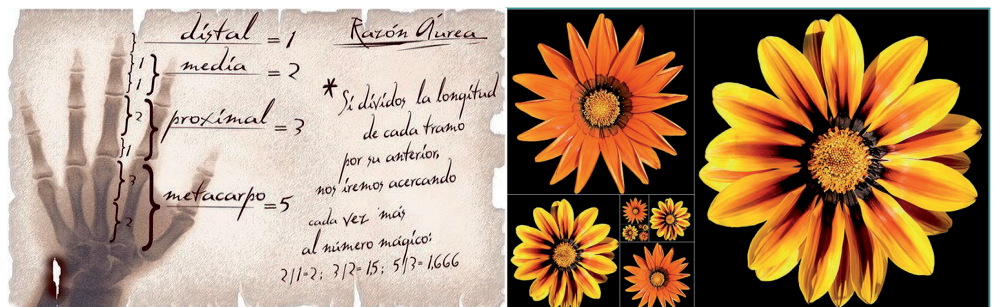 distal = 1
media = 2
proximal = 3
metacarpo = 5
1
1
2
1
3
2
Razón Áurea
* Si divides la longitud
de cada tramo
por su anterior,
nos iremos acercando
cada vez más
al número mágico:
2/1=2; 3/2=1,5; 5/3=1,666